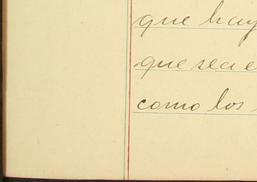 que hay
que sea e
como los